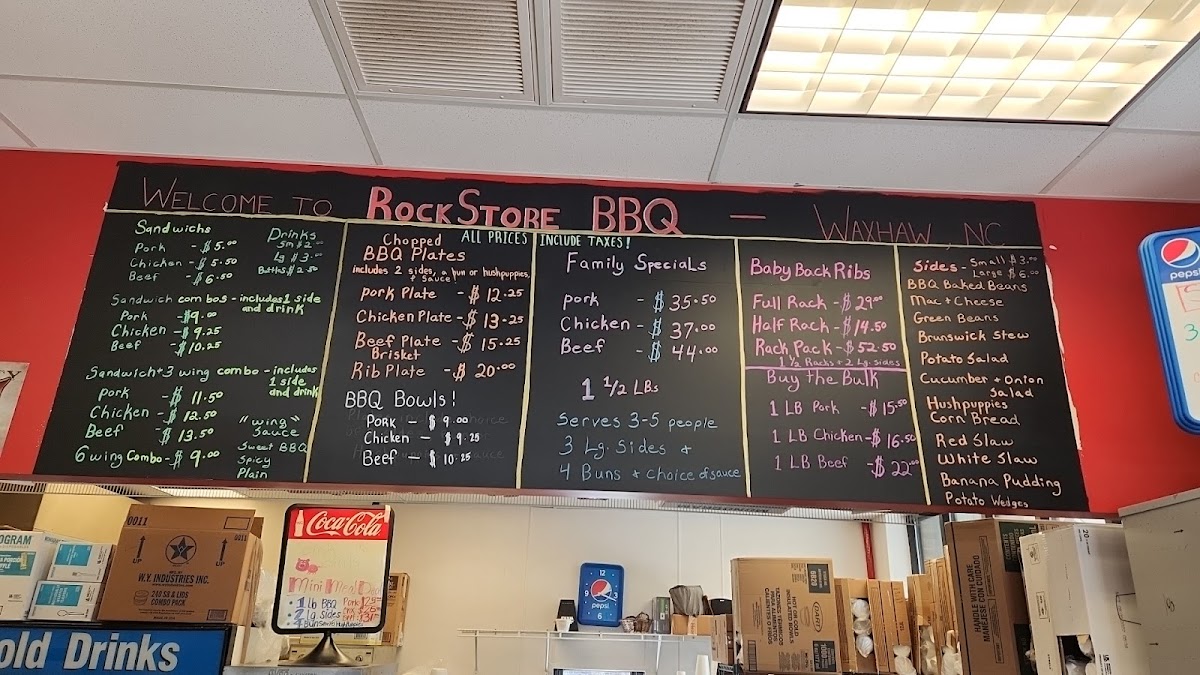 WELCOME TO ROCKSTORE BBQ — WAXHAW, NC
ALL PRICES INCLUDE TAXES!
Sandwichs
Pork - $5.00
Chicken - $5.50
Beef - $6.50
Drinks
Sm $2.00
Lg $3.00
Bottls $2.50
Sandwich combos - includes 1 side
and drink
Pork - $9.00
Chicken - $9.25
Beef - $10.25
Sandwich + 3 wing combo - includes
1 side
and drink
Pork - $11.50
Chicken - $12.50
Beef - $13.50
6 wing Combo - $9.00
"wing"
Sauce
Sweet BBQ
Spicy
Plain
Chopped
BBQ Plates
includes 2 sides, a bun or hushpuppies,
+ sauce!
Pork Plate - $12.25
Chicken Plate - $13.25
Beef Plate - $15.25
Brisket
Rib Plate - $20.00
BBQ Bowls!
Pork - $9.00
Chicken - $9.25
Beef - $10.25
Family Specials
Pork - $35.50
Chicken - $37.00
Beef - $44.00
1 1/2 LBs
Serves 3-5 people
3 Lg. Sides +
4 Buns + choice of sauce
Baby Back Ribs
Full Rack - $29.00
Half Rack - $14.50
Rack Pack - $52.50
1 1/2 Racks + 2 Lg. sides
Buy the Bulk
1 LB Pork - $15.50
1 LB Chicken - $16.50
1 LB Beef - $22.00
Sides - Small $3.00
Large $6.00
BBQ Baked Beans
Mac + Cheese
Green Beans
Brunswick Stew
Potato Salad
Cucumber + Onion
Salad
Hushpuppies
Corn Bread
Red Slaw
White Slaw
Banana Pudding
Potato Wedges
pepsi
0011
0011
UP
UP
W.Y. INDUSTRIES INC.
240 SETS & LIDS
COMBO PACK
Coca-Cola
Mini Meal
1 Lb BBQ
2 Lg Sides
4 Buns
old Drinks
pepsi
12
6
HANDLE WITH CARE
MANÉJESE CON CUIDADO